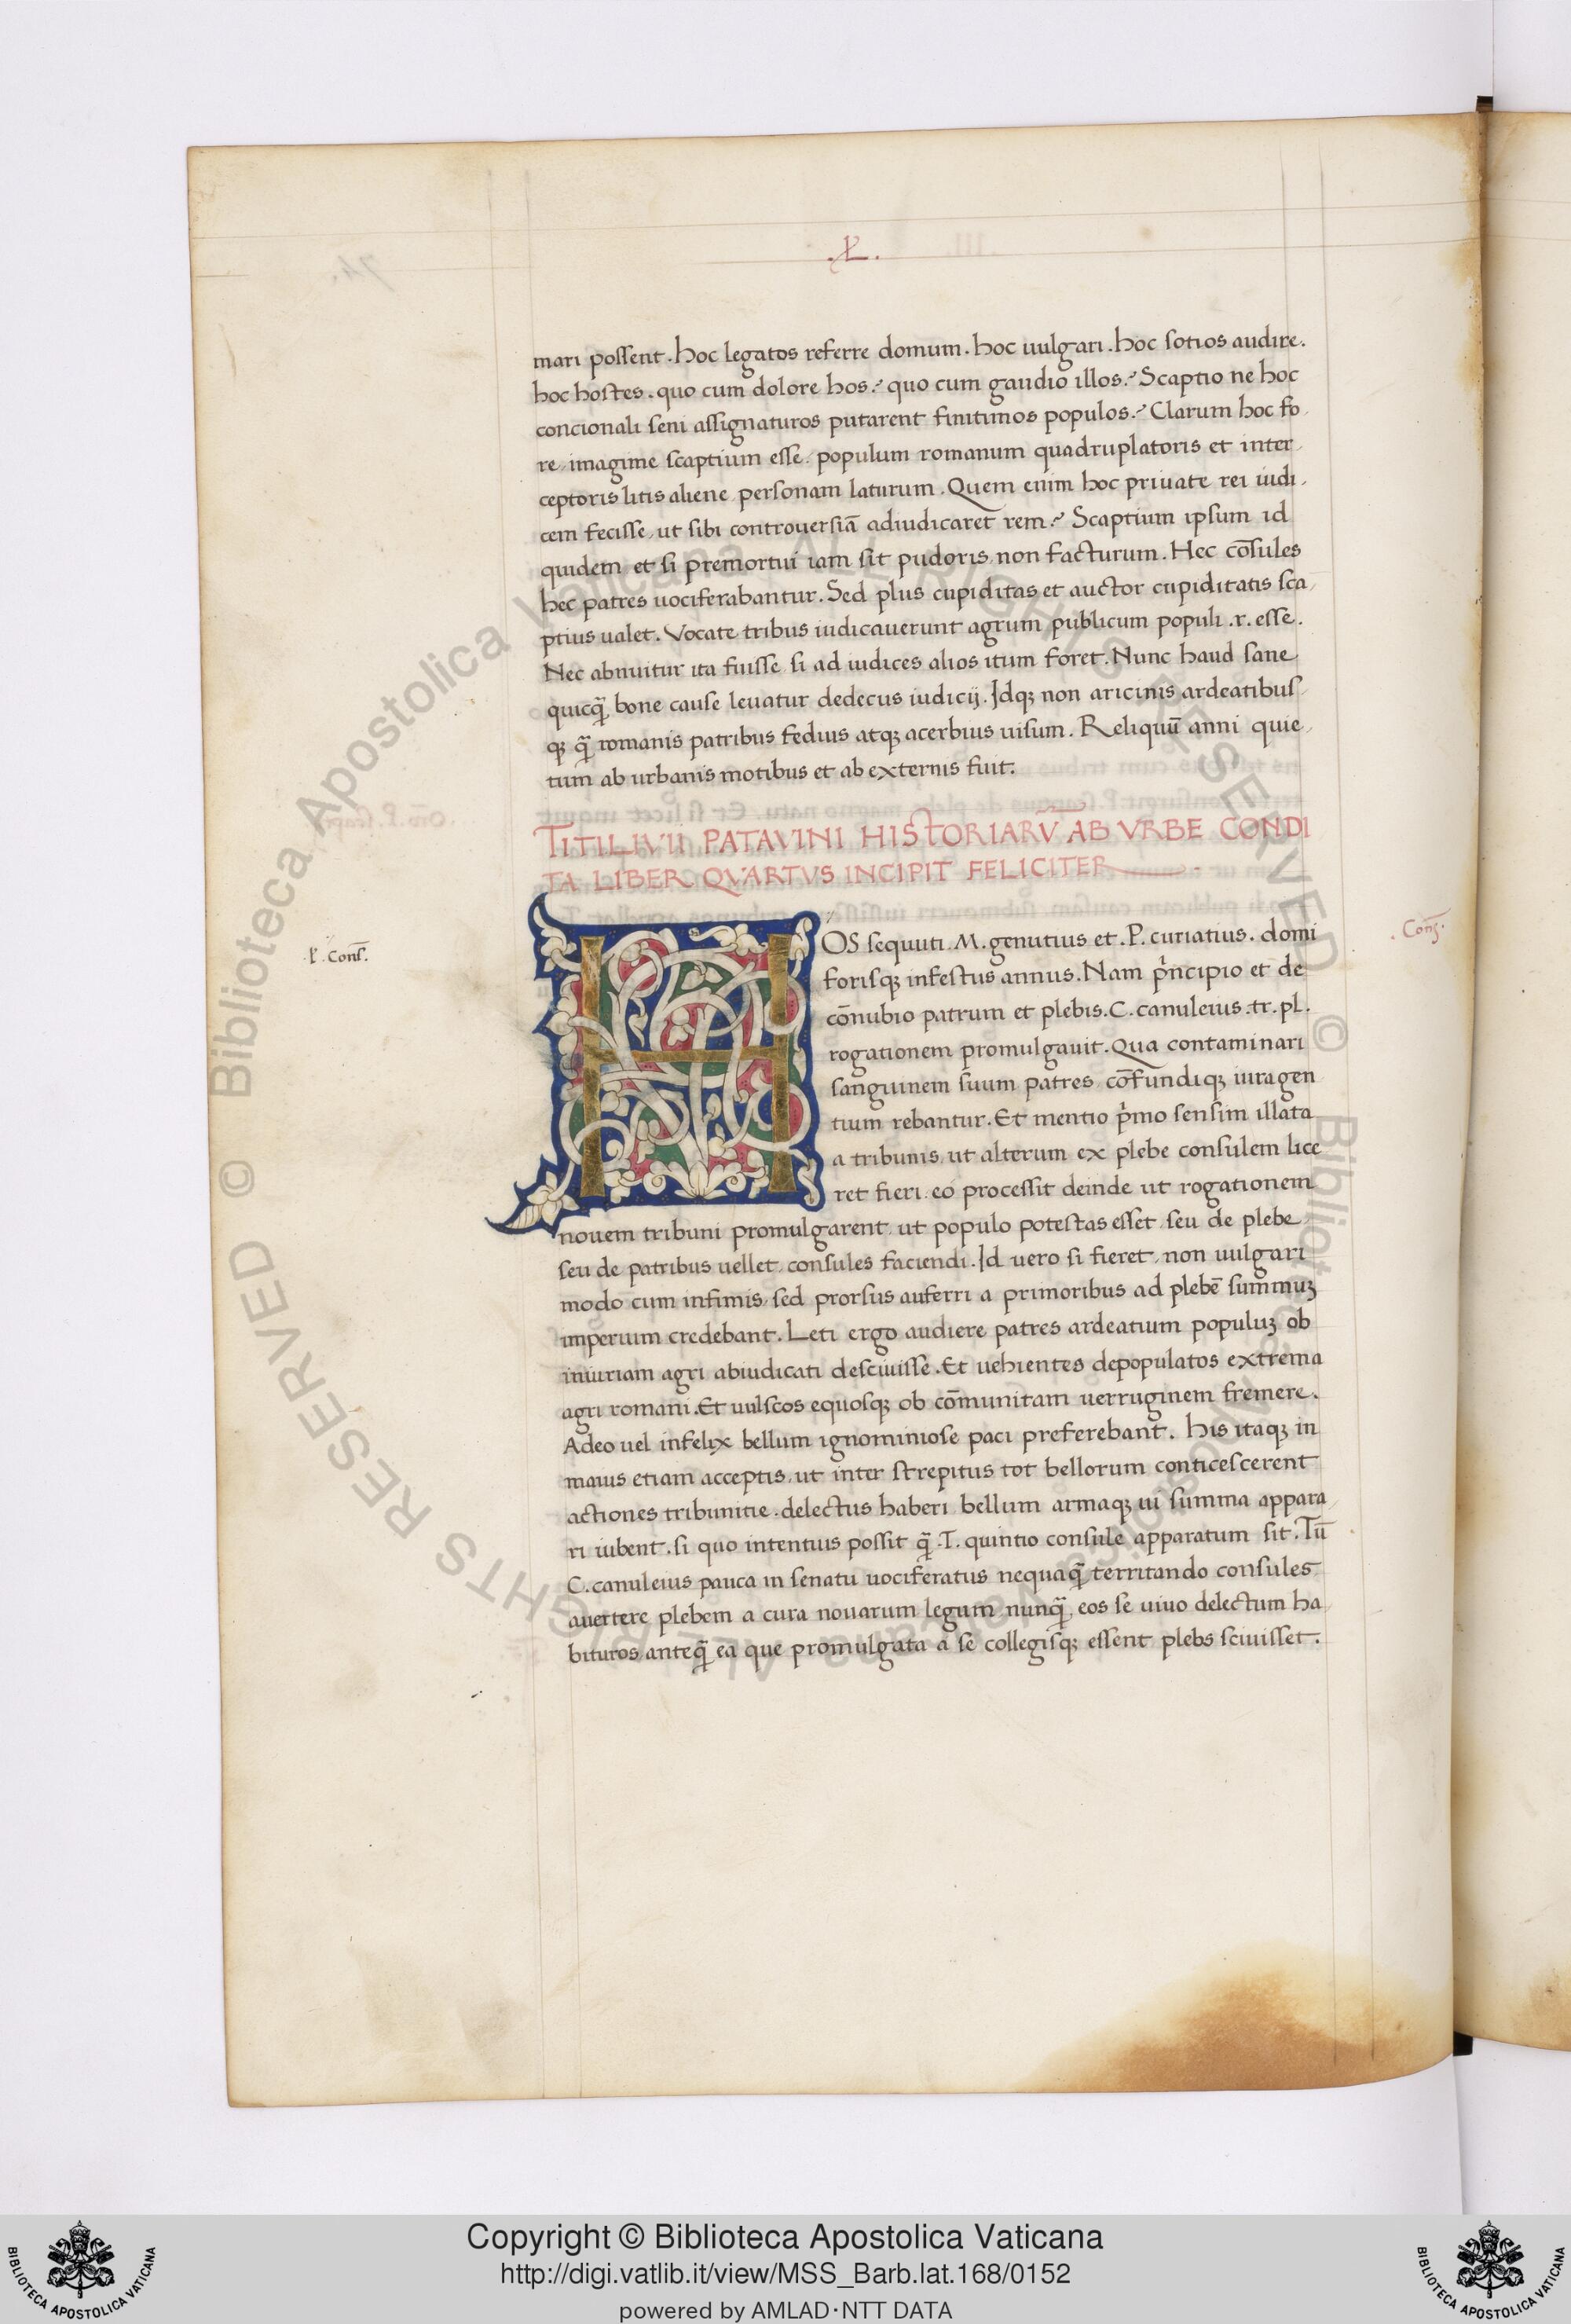 .L.
mari possent. hoc legatos referre domum. hoc uulgari. hoc sotios audire.
hoc hostes. quo cum dolore hos? quo cum gaudio illos? Scaptio ne hoc
concionali seni assignaturos putarent finitimos populos? Clarum hoc fo
re imagine scaptium esse. populum romanum quadruplatoris et inter
ceptoris litis aliene personam laturum. Quem enim hoc priuate rei iudi
cem fecisse, ut sibi controuersiā adiudicaret rem? Scaptium ipsum id
quidem et si premortui iam sit pudoris non facturum. Hec cōsules
hec patres uociferabantur. Sed plus cupiditas et auctor cupiditatis sca
ptius ualet. Vocate tribus iudicauerunt agrum publicum populi .r. esse.
Nec abnuitur ita fuisse si ad iudices alios itum foret. Nunc haud sane
quicq̄ bone cause leuatur dedecus iudicij. Idqꝫ non aricinis ardeatibus
qꝫ q̄ romanis patribus fedius atqꝫ acerbius uisum. Reliquū anni quie
tum ab urbanis motibus et ab externis fuit.
TITI LIVII PATAVINI HISTORIARV̄ AB VRBE CONDI
TA LIBER QVARTVS INCIPIT FELICITER
HOS sequuti .M. genutius et .P. curiatius. domi
.Cons̄.
.P. Cons̄.
forisqꝫ infestus annus. Nam pͥncipio et de
cōnubio patrum et plebis. C. canuleius .tr. pl.
rogationem promulgauit. Qua contaminari
sanguinem suum patres cōfundiqꝫ iura gen
tium rebantur. Et mentio pͥmo sensim illata
a tribunis, ut alterum ex plebe consulem lice
ret fieri eo processit deinde ut rogationem
nouem tribuni promulgarent, ut populo potestas esset, seu de plebe
seu de patribus uellet consules faciendi. Id uero si fieret, non uulgari
modo cum infimis, sed prorsus auferri a primoribus ad plebē summuꝫ
imperium credebant. Leti ergo audiere patres ardeatium populuꝫ ob
iniuriam agri abiudicati desciuisse. Et uehientes depopulatos extrema
agri romani. Et uulscos equosqꝫ ob cōmunitam uerruginem fremere.
Adeo uel infelix bellum ignominiose paci preferebant. His itaqꝫ in
maius etiam acceptis, ut inter strepitus tot bellorum conticescerent
actiones tribunitie. delectus haberi bellum armaqꝫ ui summa appara
ri iubent. si quo intentius possit q̄ .T. quintio consule apparatum sit. Tū
C. canuleius pauca in senatu uociferatus nequaq̄ territando consules
auertere plebem a cura nouarum legum nunq̄ eos se uiuo delectum ha
bituros, anteq̄ ea que promulgata a se collegisqꝫ essent plebs sciuisset.
© Biblioteca Apostolica Vaticana ALL RIGHTS RESERVED
Copyright © Biblioteca Apostolica Vaticana
http://digi.vatlib.it/view/MSS_Barb.lat.168/0152
powered by AMLAD·NTT DATA
BIBLIOTECA APOSTOLICA VATICANA
BIBLIOTECA APOSTOLICA VATICANA